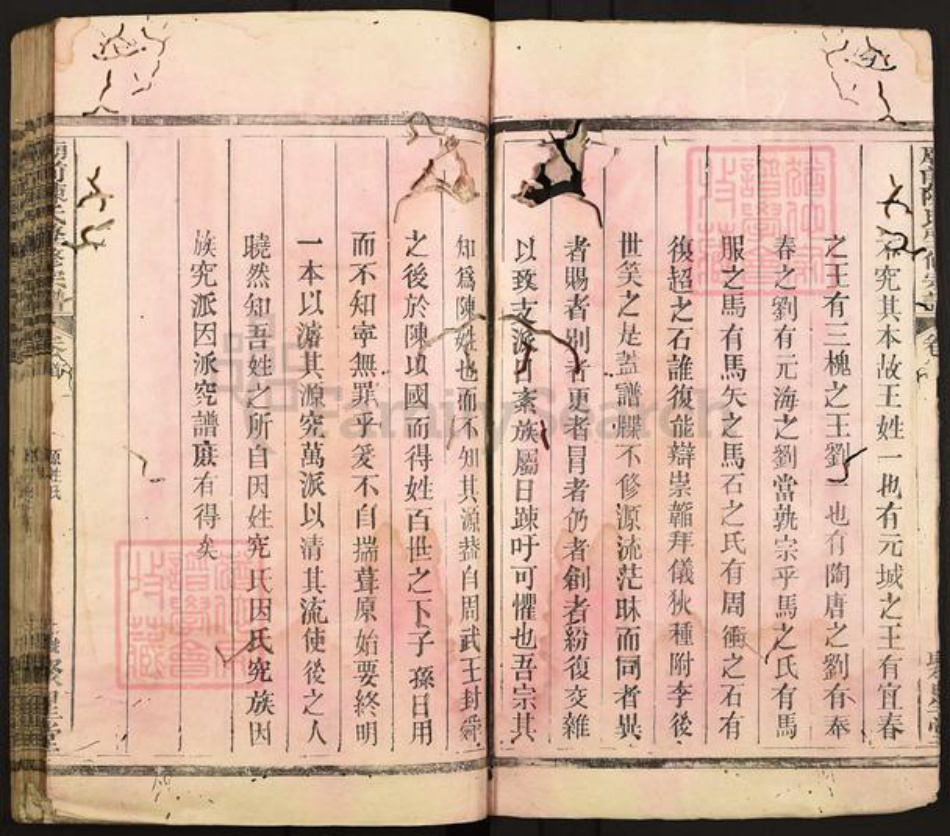 不究其本故王姓一也有元城之王有宜春
之王有三槐之王劉一也有陶唐之劉有奉
春之劉有元海之劉當孰宗乎馬之氏有馬
服之馬有馬矢之馬石之氏有周衛之石有
後超之石誰復能辯崇韜拜儀狄種附李後
世笑之是蓋譜牒不修源流茫昧而同者異
者賜者別者更者冒者仍者創者紛復交雜
以致支派日紊族屬日踈吁可懼也吾宗其
知爲陳姓也而不知其源葢自周武王封舜
之後於陳以國而得姓百世之下子孫日用
而不知寧無罪乎爰不自揣葺原始要終明
一本以濬其源究萬派以清其流使後之人
曉然知吾姓之所自因姓究氏因氏究族因
族究派因派究譜庻有得矣
源姓氏
FamilySearch